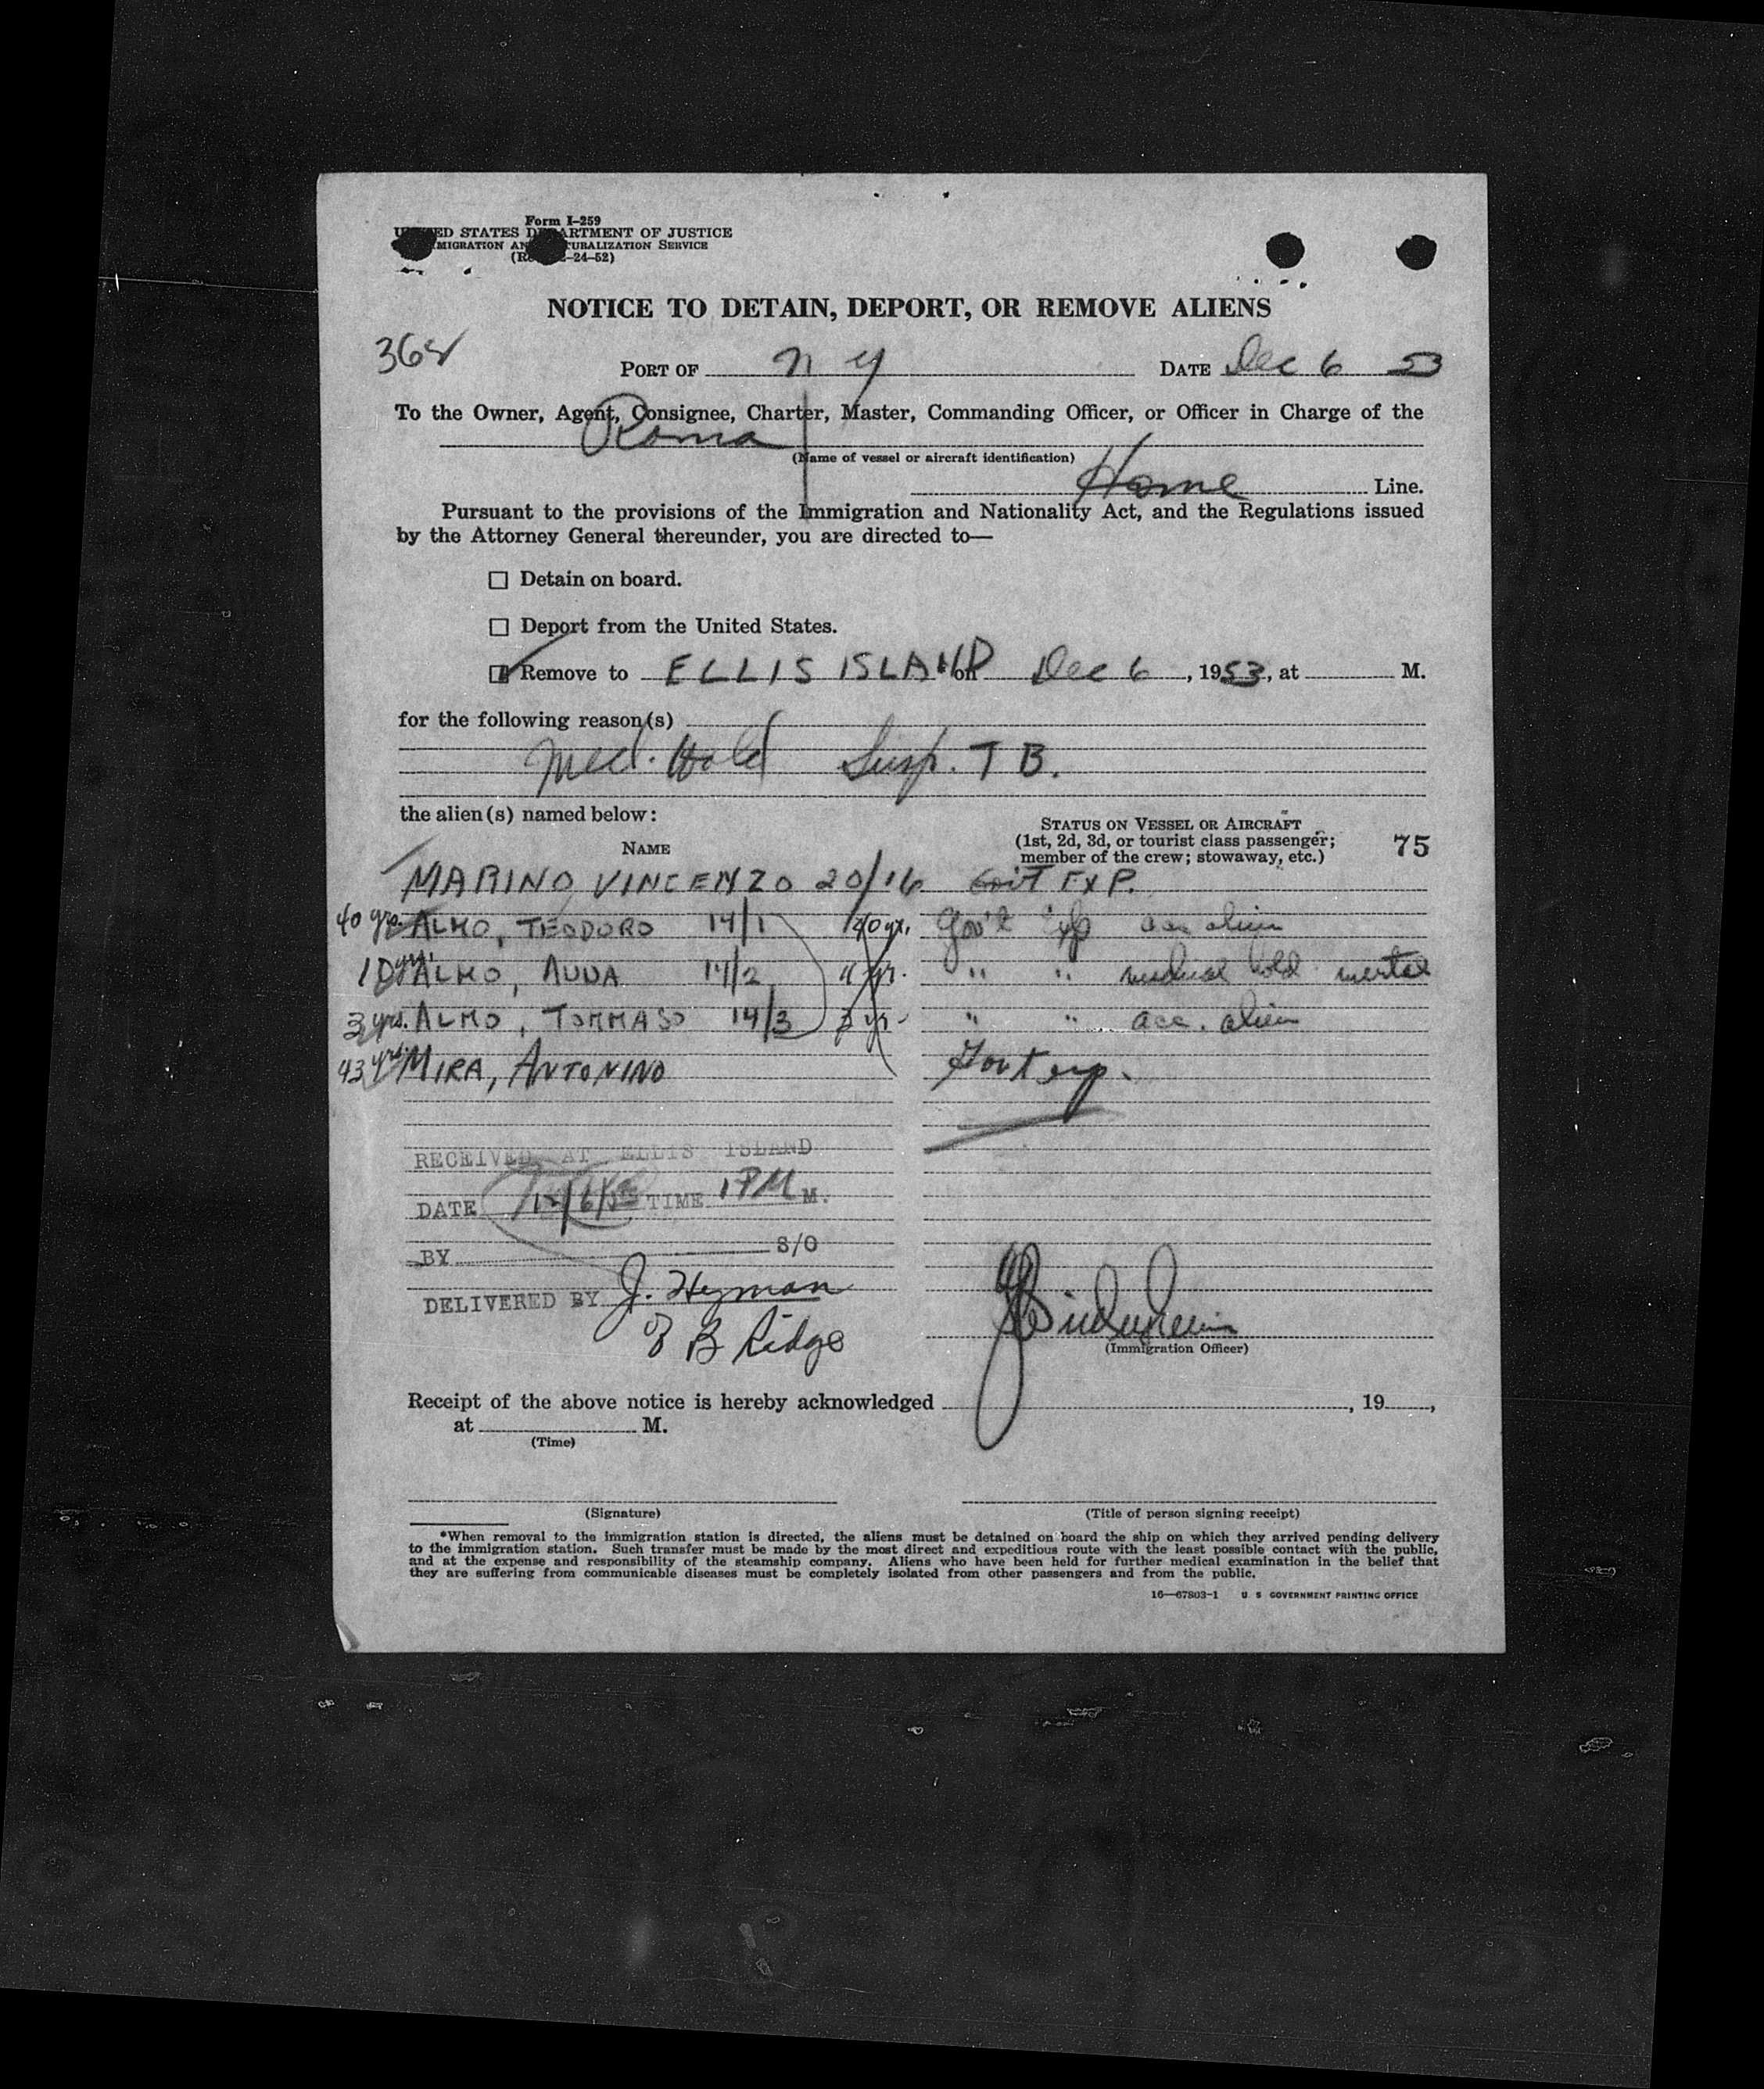 Form I-259
UNITED STATES DEPARTMENT OF JUSTICE
IMMIGRATION AND NATURALIZATION SERVICE
(Rev. -24-52)
NOTICE TO DETAIN, DEPORT, OR REMOVE ALIENS
368
PORT OF N Y DATE Dec 6 53
To the Owner, Agent, Consignee, Charter, Master, Commanding Officer, or Officer in Charge of the
Roma
(Name of vessel or aircraft identification)
Home Line.
Pursuant to the provisions of the Immigration and Nationality Act, and the Regulations issued
by the Attorney General thereunder, you are directed to—
☐ Detain on board.
☐ Deport from the United States.
☑ Remove to ELLIS ISLAND on Dec 6, 1953, at M.
for the following reason(s)
Med. Hold Susp. T B.
the alien(s) named below:
NAME
STATUS ON VESSEL OR AIRCRAFT
(1st, 2d, 3d, or tourist class passenger;
member of the crew; stowaway, etc.)
75
MARINO VINCENZO 20/16 Gov't EXP.
40 yrs. ALMO, TEODORO 14/1 40 yr. Gov't Exp acc alien
ALMO, AUDA 14/2 " " medical hold mental
3 yrs. ALMO, TOMMASO 14/3 3 yr. " " acc. alien
43 yrs. MIRA, ANTONINO Govt exp.
RECEIVED AT ELLIS ISLAND
DATE 12/6/53 TIME 1 PM M.
BY S/O
DELIVERED BY J. Heyman
of B Ridge
(Immigration Officer)
Receipt of the above notice is hereby acknowledged , 19 ,
at M.
(Time)
(Signature)
(Title of person signing receipt)
*When removal to the immigration station is directed, the aliens must be detained on board the ship on which they arrived pending delivery
to the immigration station. Such transfer must be made by the most direct and expeditious route with the least possible contact with the public,
and at the expense and responsibility of the steamship company. Aliens who have been held for further medical examination in the belief that
they are suffering from communicable diseases must be completely isolated from other passengers and from the public.
16—67803-1 U S GOVERNMENT PRINTING OFFICE